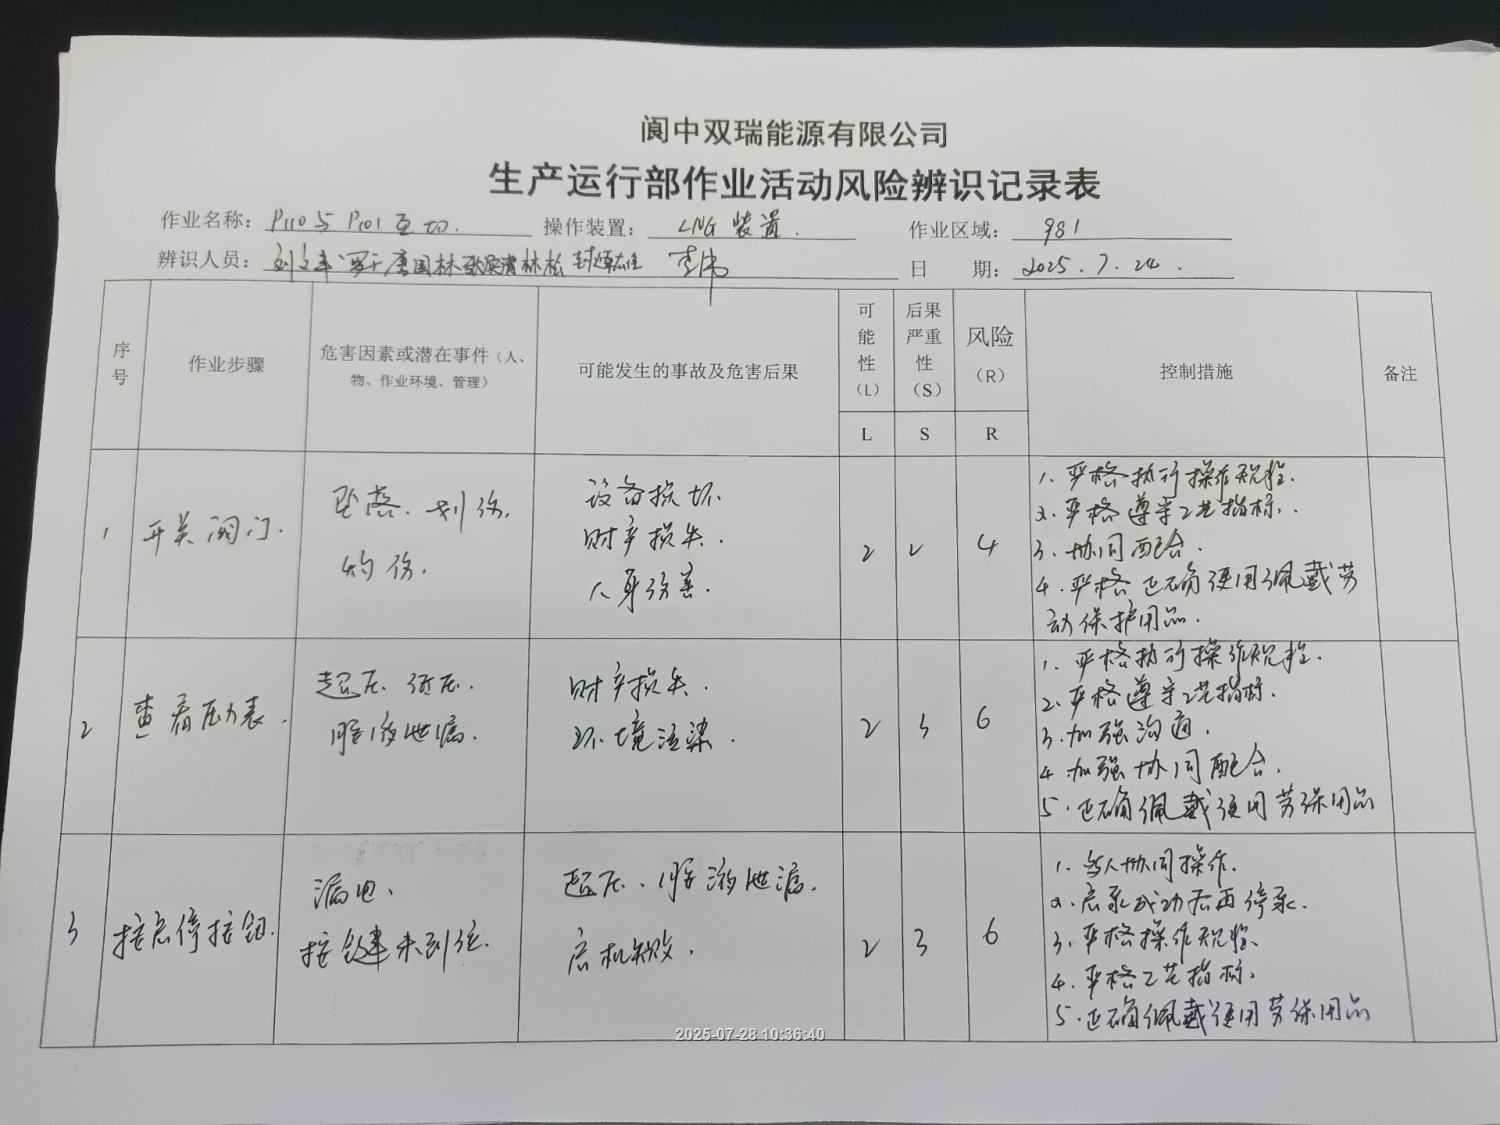 阆中双瑞能源有限公司
生产运行部作业活动风险辨识记录表
作业名称： P110与P101互切. 操作装置： LNG装置. 作业区域： 981
辨识人员： 唐国林 林松 李伟 日 期： 2025.7.24.
序号 作业步骤 危害因素或潜在事件（人、物、作业环境、管理） 可能发生的事故及危害后果 可能性（L） 后果严重性（S） 风险（R） 控制措施 备注
L S R
1 开关阀门. 坠落、划伤, 灼伤. 设备损坏. 财产损失. 人身伤害. 2 2 4
1. 严格执行操作规程.
2. 严格遵守工艺指标.
3. 协同配合.
4. 严格正确使用佩戴劳
动保护用品.
2 查看压力表. 超压. 低压. 胺液泄漏. 财产损失. 环境污染. 2 3 6
1. 严格执行操作规程.
2. 严格遵守工艺指标.
3. 加强沟通.
4. 加强协同配合.
5. 正确佩戴使用劳保用品
3 按启停按钮. 漏电、 按键未到位. 超压、胺液泄漏. 启机失败. 2 3 6
1. 多人协同操作.
2. 启泵成功后再停泵.
3. 严格操作规程.
4. 严格工艺指标.
5. 正确佩戴使用劳保用品
2025-07-28 10:36:40